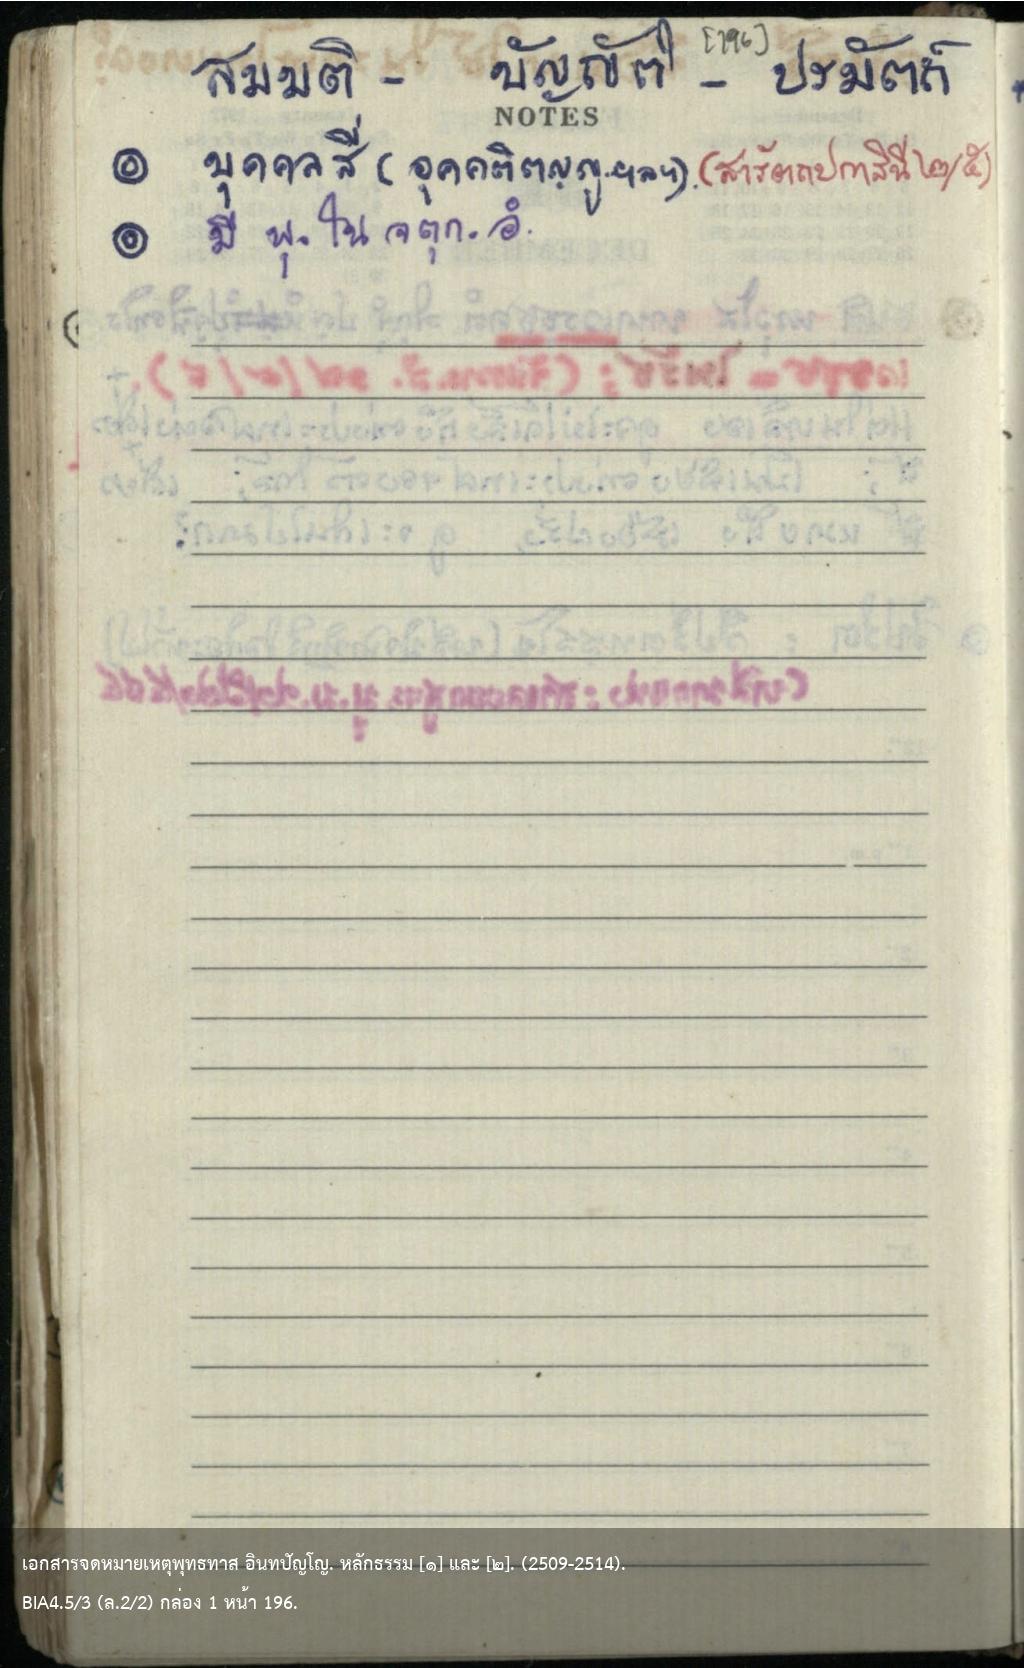 [196]
สมมติ - บัญญัติ - ปรมัตถ์
NOTES
๏ บุคคลสี่ (อุคคติตญญู.ฯลฯ). (สารัตถปกาสินี ๒/๕)
๏ มี พุ. ใน จตุก. อํ.
เอกสารจดหมายเหตุพุทธทาส อินทปัญโญ. หลักธรรม [๑] และ [๒]. (2509-2514).
BIA4.5/3 (ล.2/2) กล่อง 1 หน้า 196.